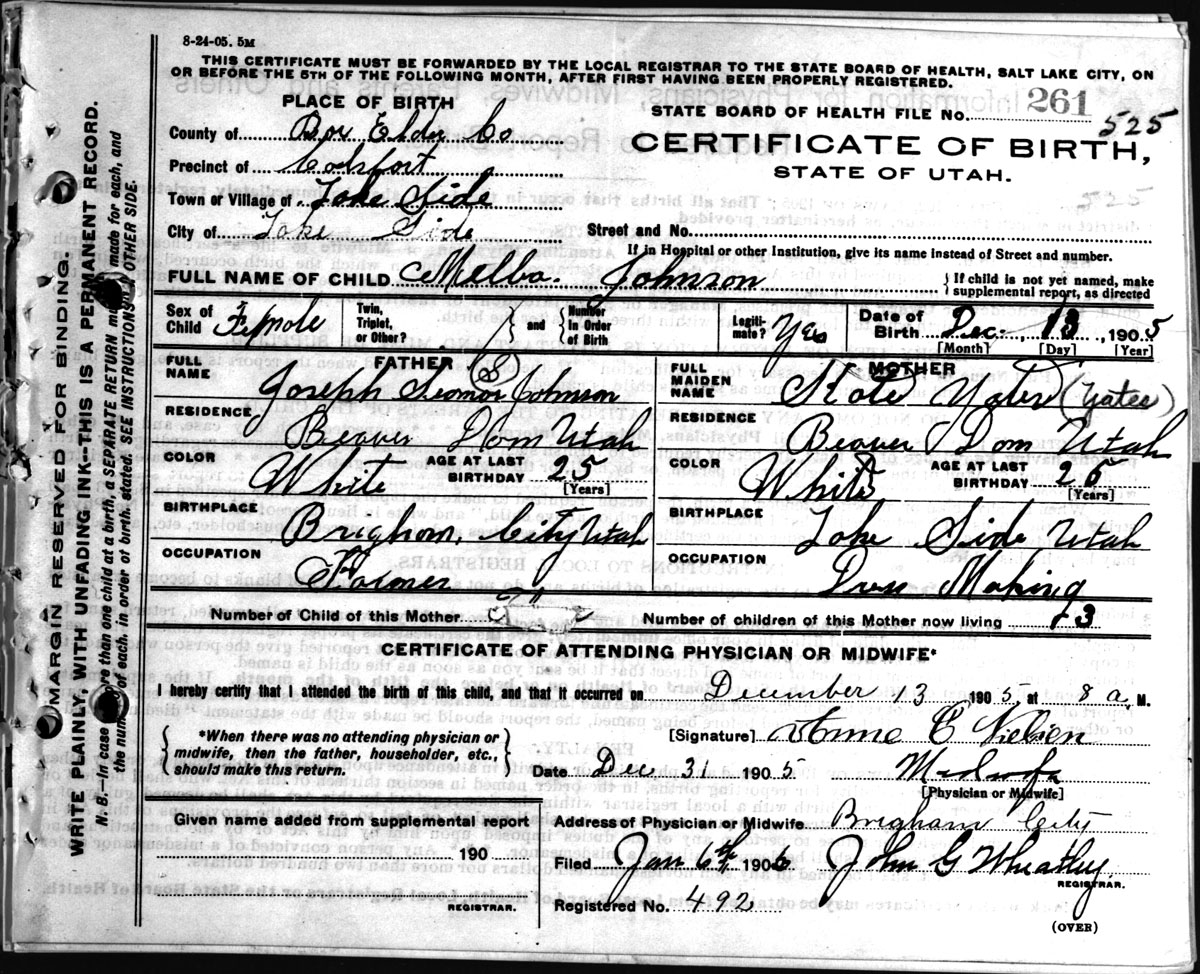 8-24-05. 5M
THIS CERTIFICATE MUST BE FORWARDED BY THE LOCAL REGISTRAR TO THE STATE BOARD OF HEALTH, SALT LAKE CITY, ON
OR BEFORE THE 5TH OF THE FOLLOWING MONTH, AFTER FIRST HAVING BEEN PROPERLY REGISTERED.
PLACE OF BIRTH
STATE BOARD OF HEALTH FILE NO. 261
525
County of Box Elder Co
CERTIFICATE OF BIRTH,
Precinct of
STATE OF UTAH.
Town or Village of Lake Side
525
City of Lake Side
Street and No.
If in Hospital or other Institution, give its name instead of Street and number.
FULL NAME OF CHILD Melba Johnson { If child is not yet named, make supplemental report, as directed
Sex of Child Female Twin, Triplet, or Other? } and { Number In Order of Birth Legitimate? Yes Date of Birth Dec. 13, 1905
[Month] [Day] [Year]
FATHER MOTHER
FULL NAME Joseph Johnson FULL MAIDEN NAME Kate Yates (Yates)
RESIDENCE Beaver Dam Utah RESIDENCE Beaver Dam Utah
COLOR White AGE AT LAST BIRTHDAY 25 [Years] COLOR White AGE AT LAST BIRTHDAY 25 [Years]
BIRTHPLACE Brigham City Utah BIRTHPLACE Lake Side Utah
OCCUPATION Farmer OCCUPATION Dress Making
Number of Child of this Mother Number of children of this Mother now living 3
CERTIFICATE OF ATTENDING PHYSICIAN OR MIDWIFE*
I hereby certify that I attended the birth of this child, and that it occurred on December 13 1905 at 8 a. M.
{ *When there was no attending physician or midwife, then the father, householder, etc., should make this return. }
[Signature] Anne C Nielsen
Date Dec 31 1905. Midwife
[Physician or Midwife]
Given name added from supplemental report
190
REGISTRAR.
Address of Physician or Midwife Brigham City
Filed Jan 6th 1906 John G Wheatley
REGISTRAR.
Registered No. 492
(OVER)
MARGIN RESERVED FOR BINDING.
WRITE PLAINLY, WITH UNFADING INK—THIS IS A PERMANENT RECORD.
N. B.—In case more than one child at a birth, a SEPARATE RETURN must be made for each, and
the number of each, in order of birth, stated. SEE INSTRUCTIONS ON OTHER SIDE.